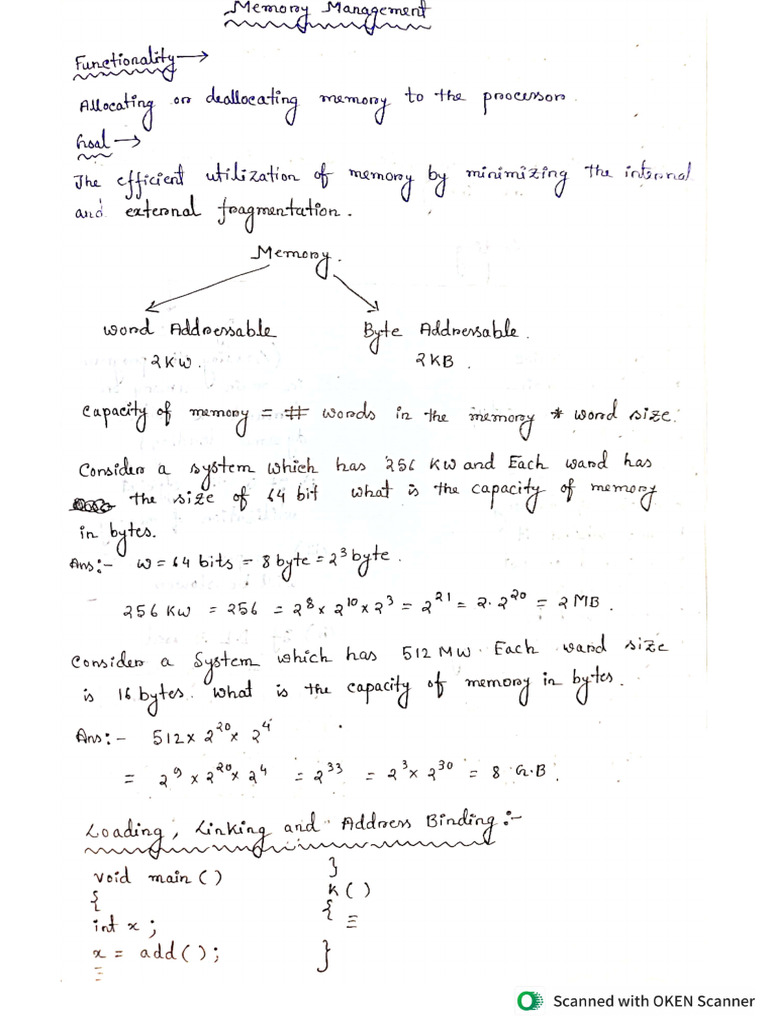 Memory Management
Functionality →
Allocating or deallocating memory to the processor.
Goal →
The efficient utilization of memory by minimizing the internal
and external fragmentation.
Memory.
Word Addressable Byte Addressable.
2KW. 2KB.
Capacity of memory = # words in the memory * word size.
Consider a system which has 256 KW and Each word has
the size of 64 bit what is the capacity of memory
in bytes.
Ans:- W = 64 bits = 8 byte = 2³ byte.
256 KW = 256 = 2⁸ x 2¹⁰ x 2³ = 2²¹ = 2·2²⁰ = 2 MB.
Consider a System which has 512 MW. Each word size
is 16 bytes. What is the capacity of memory in bytes.
Ans:- 512 x 2²⁰ x 2⁴
= 2⁹ x 2²⁰ x 2⁴ = 2³³ = 2³ x 2³⁰ = 8 G.B.
Loading, Linking and Address Binding:-
void main()
{
int x;
x = add();
}
K()
{
}
Scanned with OKEN Scanner